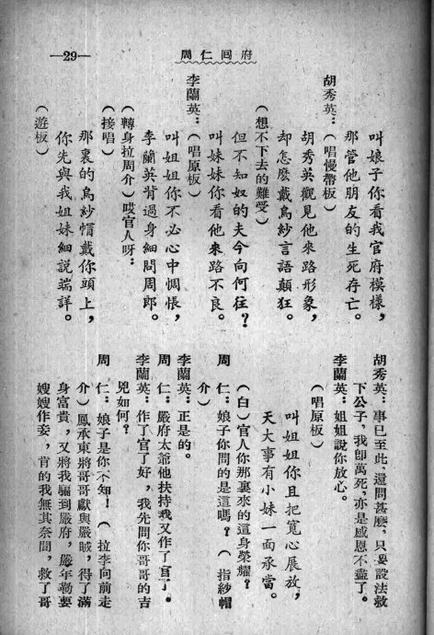 —29—
周仁囘府
叫娘子你看我官府模樣，
那管他朋友的生死存亡。
胡秀英：（唱慢帶板）
胡秀英觀見他來路形象，
却怎麽戴烏紗言語顛狂。
（想不下去的難受）
但不知奴的夫今向何往？
李蘭英：（唱原板）
叫妹妹你看他來路不良。
叫姐姐你不必心中惆悵，
李蘭英背過身細問周郎。
（轉身拉周介）哎官人呀：
（接唱）
那裏的烏紗帽戴你頭上，
你先與我姐妹細說端詳。
（遊板）
胡秀英：事已至此，還問甚麽，只要設法救
下公子，我卽萬死，亦是感恩不盡了。
李蘭英：姐姐說你放心。
（唱原板）
叫姐姐你且把寬心展放，
天大事有小妹一面承當。
（白）官人你那裏來的這身榮耀？
周　仁：娘子你問的是這嗎？（指紗帽
介）
李蘭英：正是的。
周　仁：嚴府太爺他扶持我又作了官了。
李蘭英：作了官了好，我先問你哥哥的吉
兇如何？
周　仁：娘子是你不知！（拉李向前走
介）鳳承東將哥哥獻與嚴賊，得了滿
身富貴，又將我騙到嚴府，嚴年勒要
嫂嫂作妾，肯的我無其奈間，救了哥